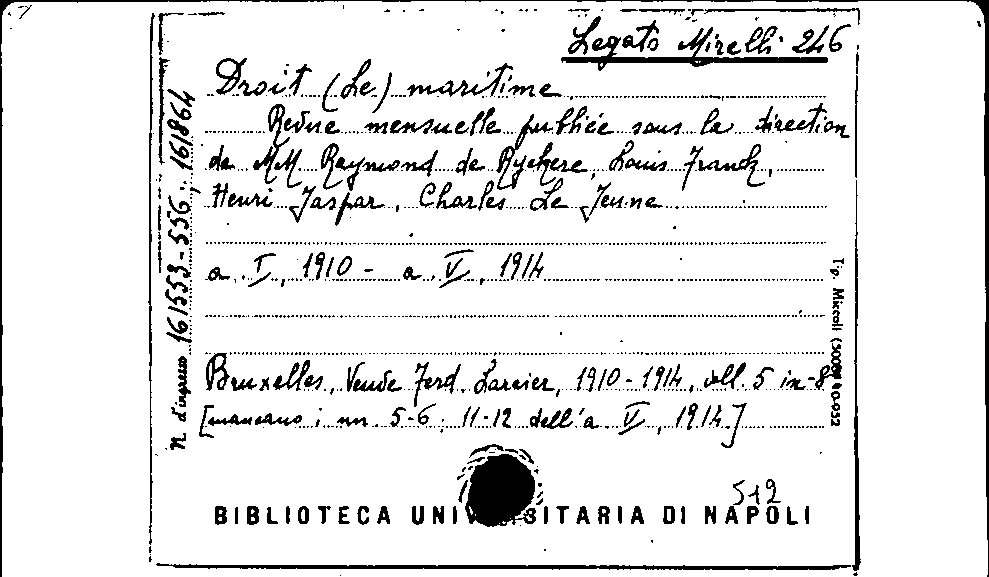 Legato Mirelli 246
Droit (Le) maritime.
Revue mensuelle publiée sous la direction
de MM. Raymond de Ryckere, Louis Franck,
Henri Jaspar, Charles Le Jeune.
a. I, 1910 - a. V, 1914
Bruxelles, Veuve Ferd. Larcier, 1910-1914, voll. 5 in-8°
[mancano i nn. 5-6; 11-12 dell'a. V, 1914]
512
BIBLIOTECA UNIVERSITARIA DI NAPOLI
N. d'ingresso 161553-556; 161864
Tip. Miccoli